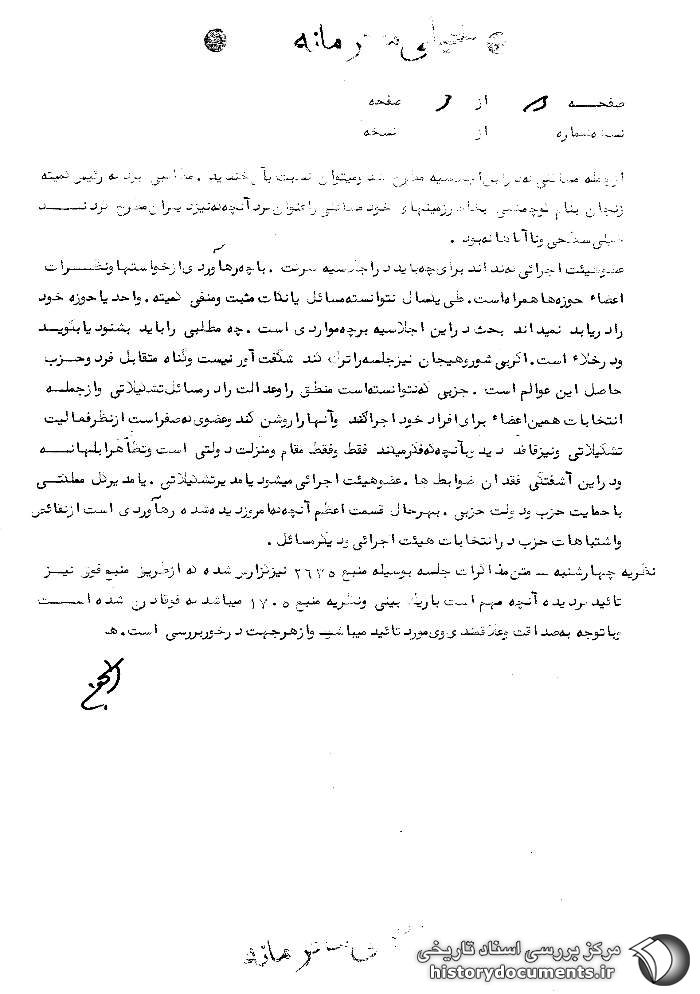 خیلی محرمانه
صفحه ۳ از ۳ صفحه
نسخه شماره از نسخه
از جمله مسائلی که در این اجلاسیه مطرح شد و میتوان نسبت بآن خندید . بود که رئیس کمیته
زنجان بنام خود مسائلی را عنوان کرد آنچه که نیز دیگران مطرح کردند
خیلی سطحی و نا آگاهانه بود .
عضو هیئت اجرائی نمیداند برای چه باید در اجلاسیه شرکت . با چه رهآوردی از خواستها و نظرات
اعضاء حوزه ها همراه است . طی یکسال نتوانسته مسائل یا نکات مثبت و منفی کمیته . واحد یا حوزه خود
را دریابد نمیداند بحث در این اجلاسیه بر چه مواردی است . چه مطلبی را باید بشنود یا بگوید
و در خلاء است . اگر بی شور و هیجان نیز جلسه را ترک کند شگفت آور نیست و گناه متقابل فرد و حزب
حاصل این عوالم است . حزبی که نتوانسته است منطق را و عدالت را در مسائل تشکیلاتی و از جمله
انتخابات همین اعضاء برای افراد خود اجرا کند و آنها را روشن کند و عضوی که صفر است از نظر فعالیت
تشکیلاتی و نیز فاقد دید و بآنچه که فکر میکند فقط و فقط مقام و منزلت دولتی است و تظاهر ابلهانه
و در این آشفتگی فقدان ضوابط ها . عضو هیئت اجرائی میشود یا مدیر تشکیلاتی . یا مدیر کل مملکتی
با حمایت حزب و دولت حزبی . بهر حال قسمت اعظم آنچه که امروز دیده شده رهآوردی است از نقائص
و اشتباهات حزب در انتخابات هیئت اجرائی و دیگر مسائل .
نظریه چهارشنبه – متن مذاکرات جلسه بوسیله منبع ۲۶۳۵ نیز گزارش شده که از طریق منبع فوق نیز
تائید گردیده آنچه مهم است باریک بینی و نظریه منبع ۱۷۰۵ میباشد که فوقا درج شده است
و با توجه به صداقت و علاقمندی وی مورد تائید میباشد و از هر جهت در خور بررسی است . ه
خیلی محرمانه
مرکز بررسی اسناد تاریخی
historydocuments.ir